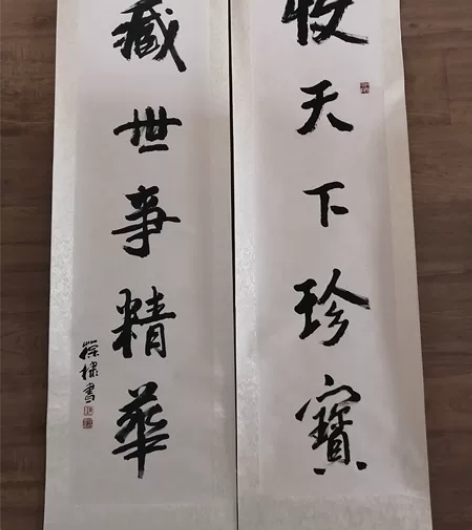 收天下珍寶
藏世事精華